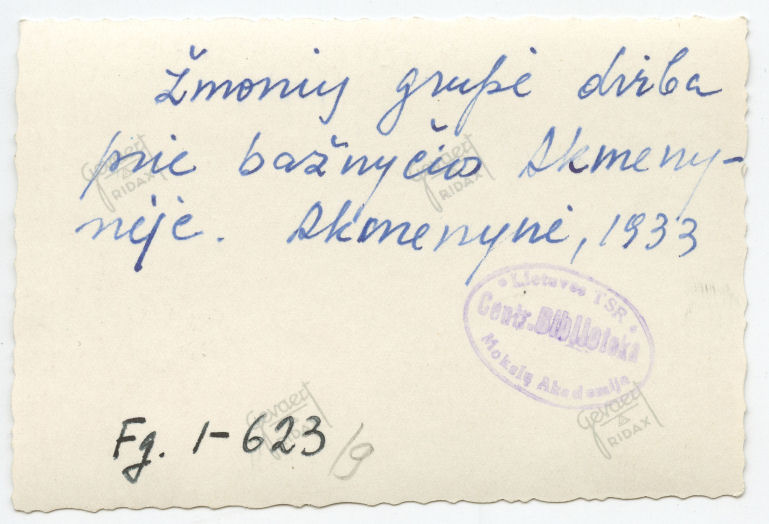 Žmonių grupė dirba
prie bažnyčios Akmeny-
nėje. Akmenynė, 1933
Lietuvos TSR
Centr. Biblioteka
Mokslų Akademija
Fg. 1-623/9
Gevaert
RIDAX
Gevaert
RIDAX
Gevaert
RIDAX
Gevaert
RIDAX